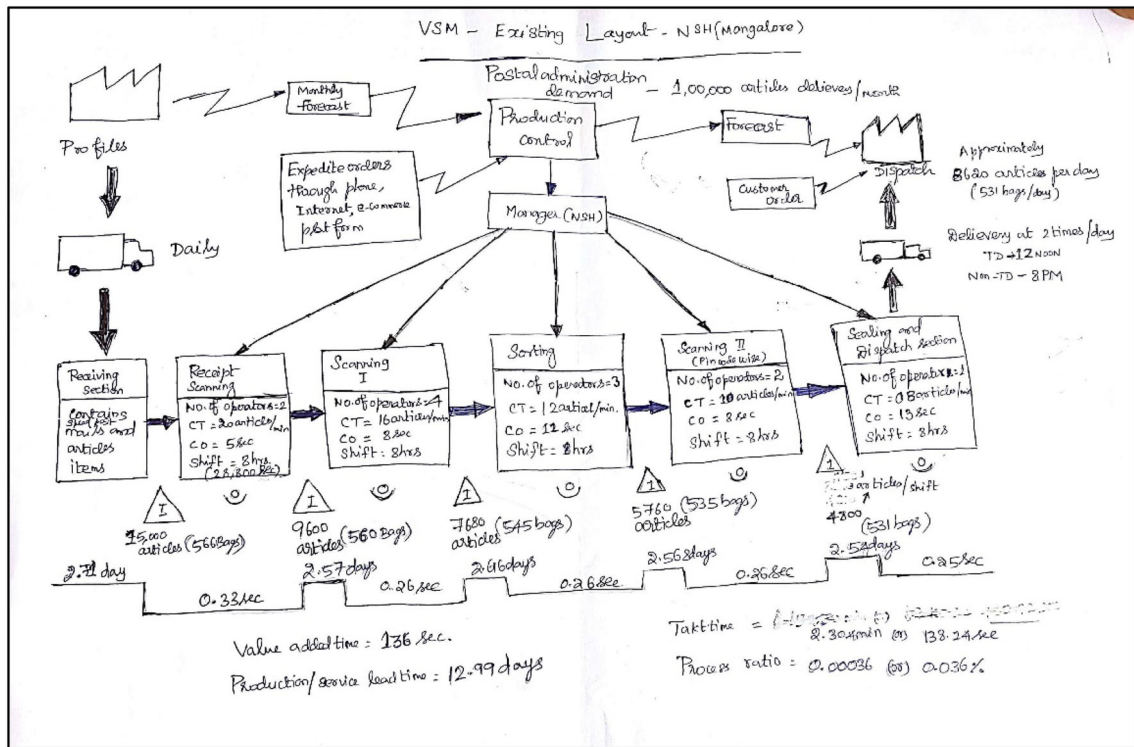 VSM - Existing Layout - NSH(Mangalore)
Postal administration
demand - 1,00,000 articles delieves/month
Monthly
Forecast
Production
control
Forecast
Pro files
Expedite orders
through phone,
Internet, e-commerce
platform
Customer
Order
DISpatch
Approximately
8620 articles per day
(531 bags/day)
Manager (NSH)
Daily
Delievery at 2 times/day
TD → 12 NOON
Non-TD - 8PM
Receiving
section
Contains
mails and
articles
items
Receipt
Scanning
No. of operators = 2
CT = 20 article/min
CO = 5 sec
Shift = 8 hrs.
(28,800 sec)
Scanning
I
No. of operators = 4
CT = 16 articles/min
CO = 8 sec
Shift = 8 hrs
Sorting
No. of operators = 3
CT = 12 articl/min.
CO = 12 sec
Shift = 8 hrs
Scanning II
(Pincode wise)
No. of operators = 2
CT = 10 articles/min
CO = 8 sec
Shift = 8 hrs
Sealing and
Dispatch section
No. of operators = 1
CT = 08 articles/min
CO = 13 sec
Shift = 8 hrs
I
15,000
articles (566 Bags)
I
9600
articles (560 Bags)
I
7680
articles (545 bags)
1
5760 (535 bags)
articles
1
articles/shift
4800
(531 bags)
2.71 day
0.33 sec
2.57 days
0.26 sec
2.66 days
0.26 sec
2.568 days
0.26 sec
2.58 days
0.25 sec
Value added time = 136 sec.
Production/service lead time = 12.99 days
Takt time =
2.304 min (or) 138.24 sec
Process ratio = 0.00036 (or) 0.036%